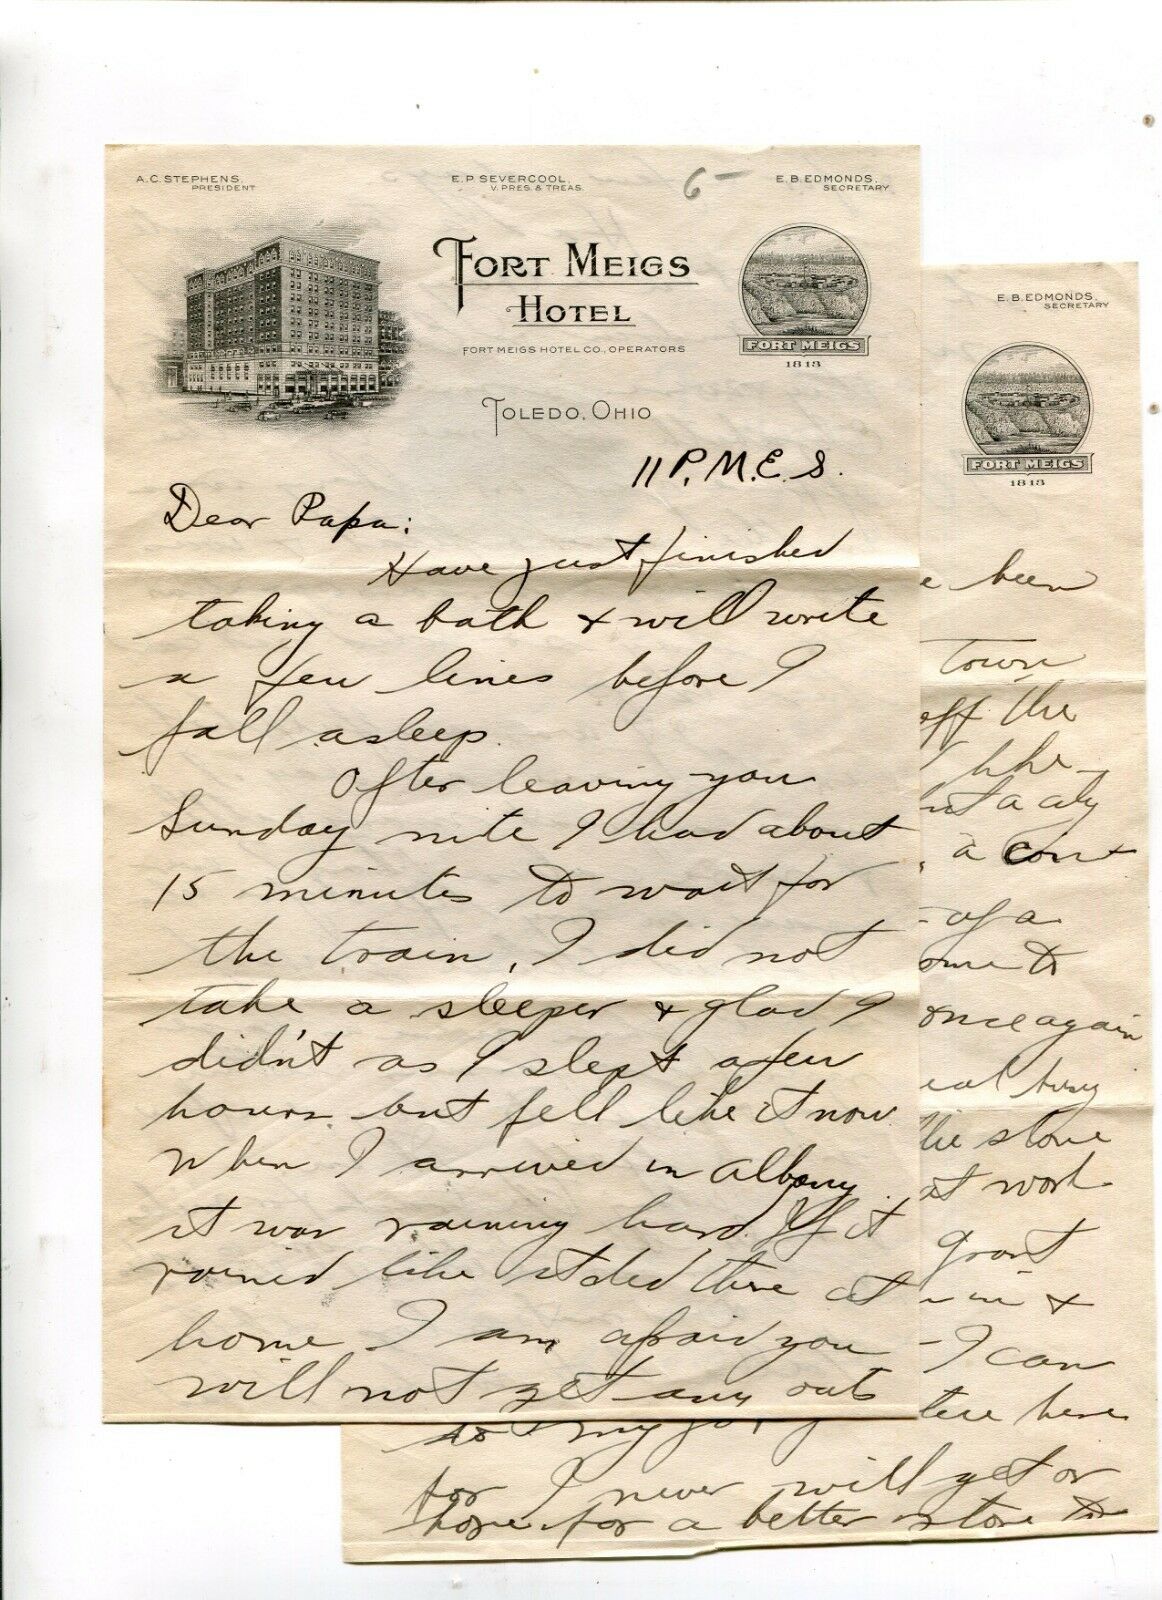 A.C. STEPHENS,
PRESIDENT
E.P. SEVERCOOL,
V. PRES. & TREAS.
6-
E.B. EDMONDS,
SECRETARY
FORT MEIGS
HOTEL
FORT MEIGS HOTEL CO., OPERATORS
FORT MEIGS
1813
TOLEDO, OHIO
11 P.M.E.S.
Dear Papa:
Have just finished
taking a bath & will write
a few lines before I
fall asleep.
After leaving you
Sunday nite I had about
15 minutes to wait for
the train, I did not
take a sleeper & glad I
didn't as I slept a few
hours but fell like it now.
When I arrived in Albany
it was raining hard. If it
rained like it did there at
home I am afraid you
will not get any oats
E.B. EDMONDS,
SECRETARY
FORT MEIGS
1813
been
town
off the
I like
but a city
, a con
- of a
to
once again
busy
the store
at work
grant
in &
- I can
here
for I never will get or
hope for a better store to